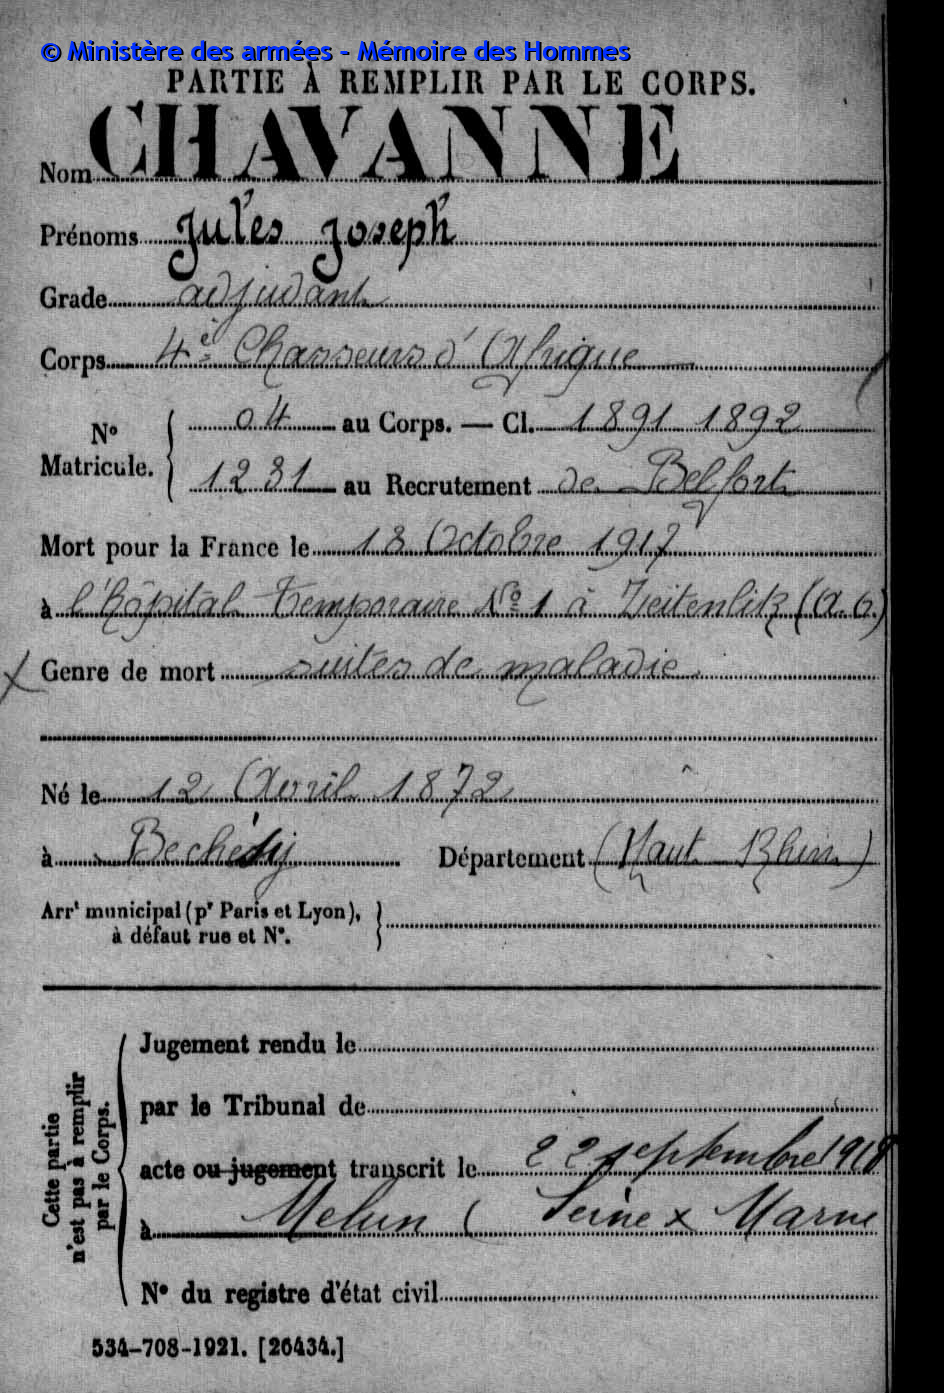 © Ministère des armées - Mémoire des Hommes
PARTIE À REMPLIR PAR LE CORPS.
Nom CHAVANNE
Prénoms Jules Joseph
Grade adjudant
Corps 4e Chasseurs d'Afrique
04 au Corps. — Cl. 1891 1892
No Matricule.
1231 au Recrutement de Belfort
Mort pour la France le 18 Octobre 1917
à l'hôpital temporaire No 1 à Zeitenlitz (A.O.)
Genre de mort suites de maladie
Né le 12 Avril 1872
à Département (Haut-Rhin)
Arrt municipal (pr Paris et Lyon),
à défaut rue et No.
Jugement rendu le
par le Tribunal de
acte ou jugement transcrit le 22 septembre
à Melun (Seine x Marne
No du registre d'état civil
Cette partie
n'est pas à remplir
par le Corps.
534-708-1921. [26434.]